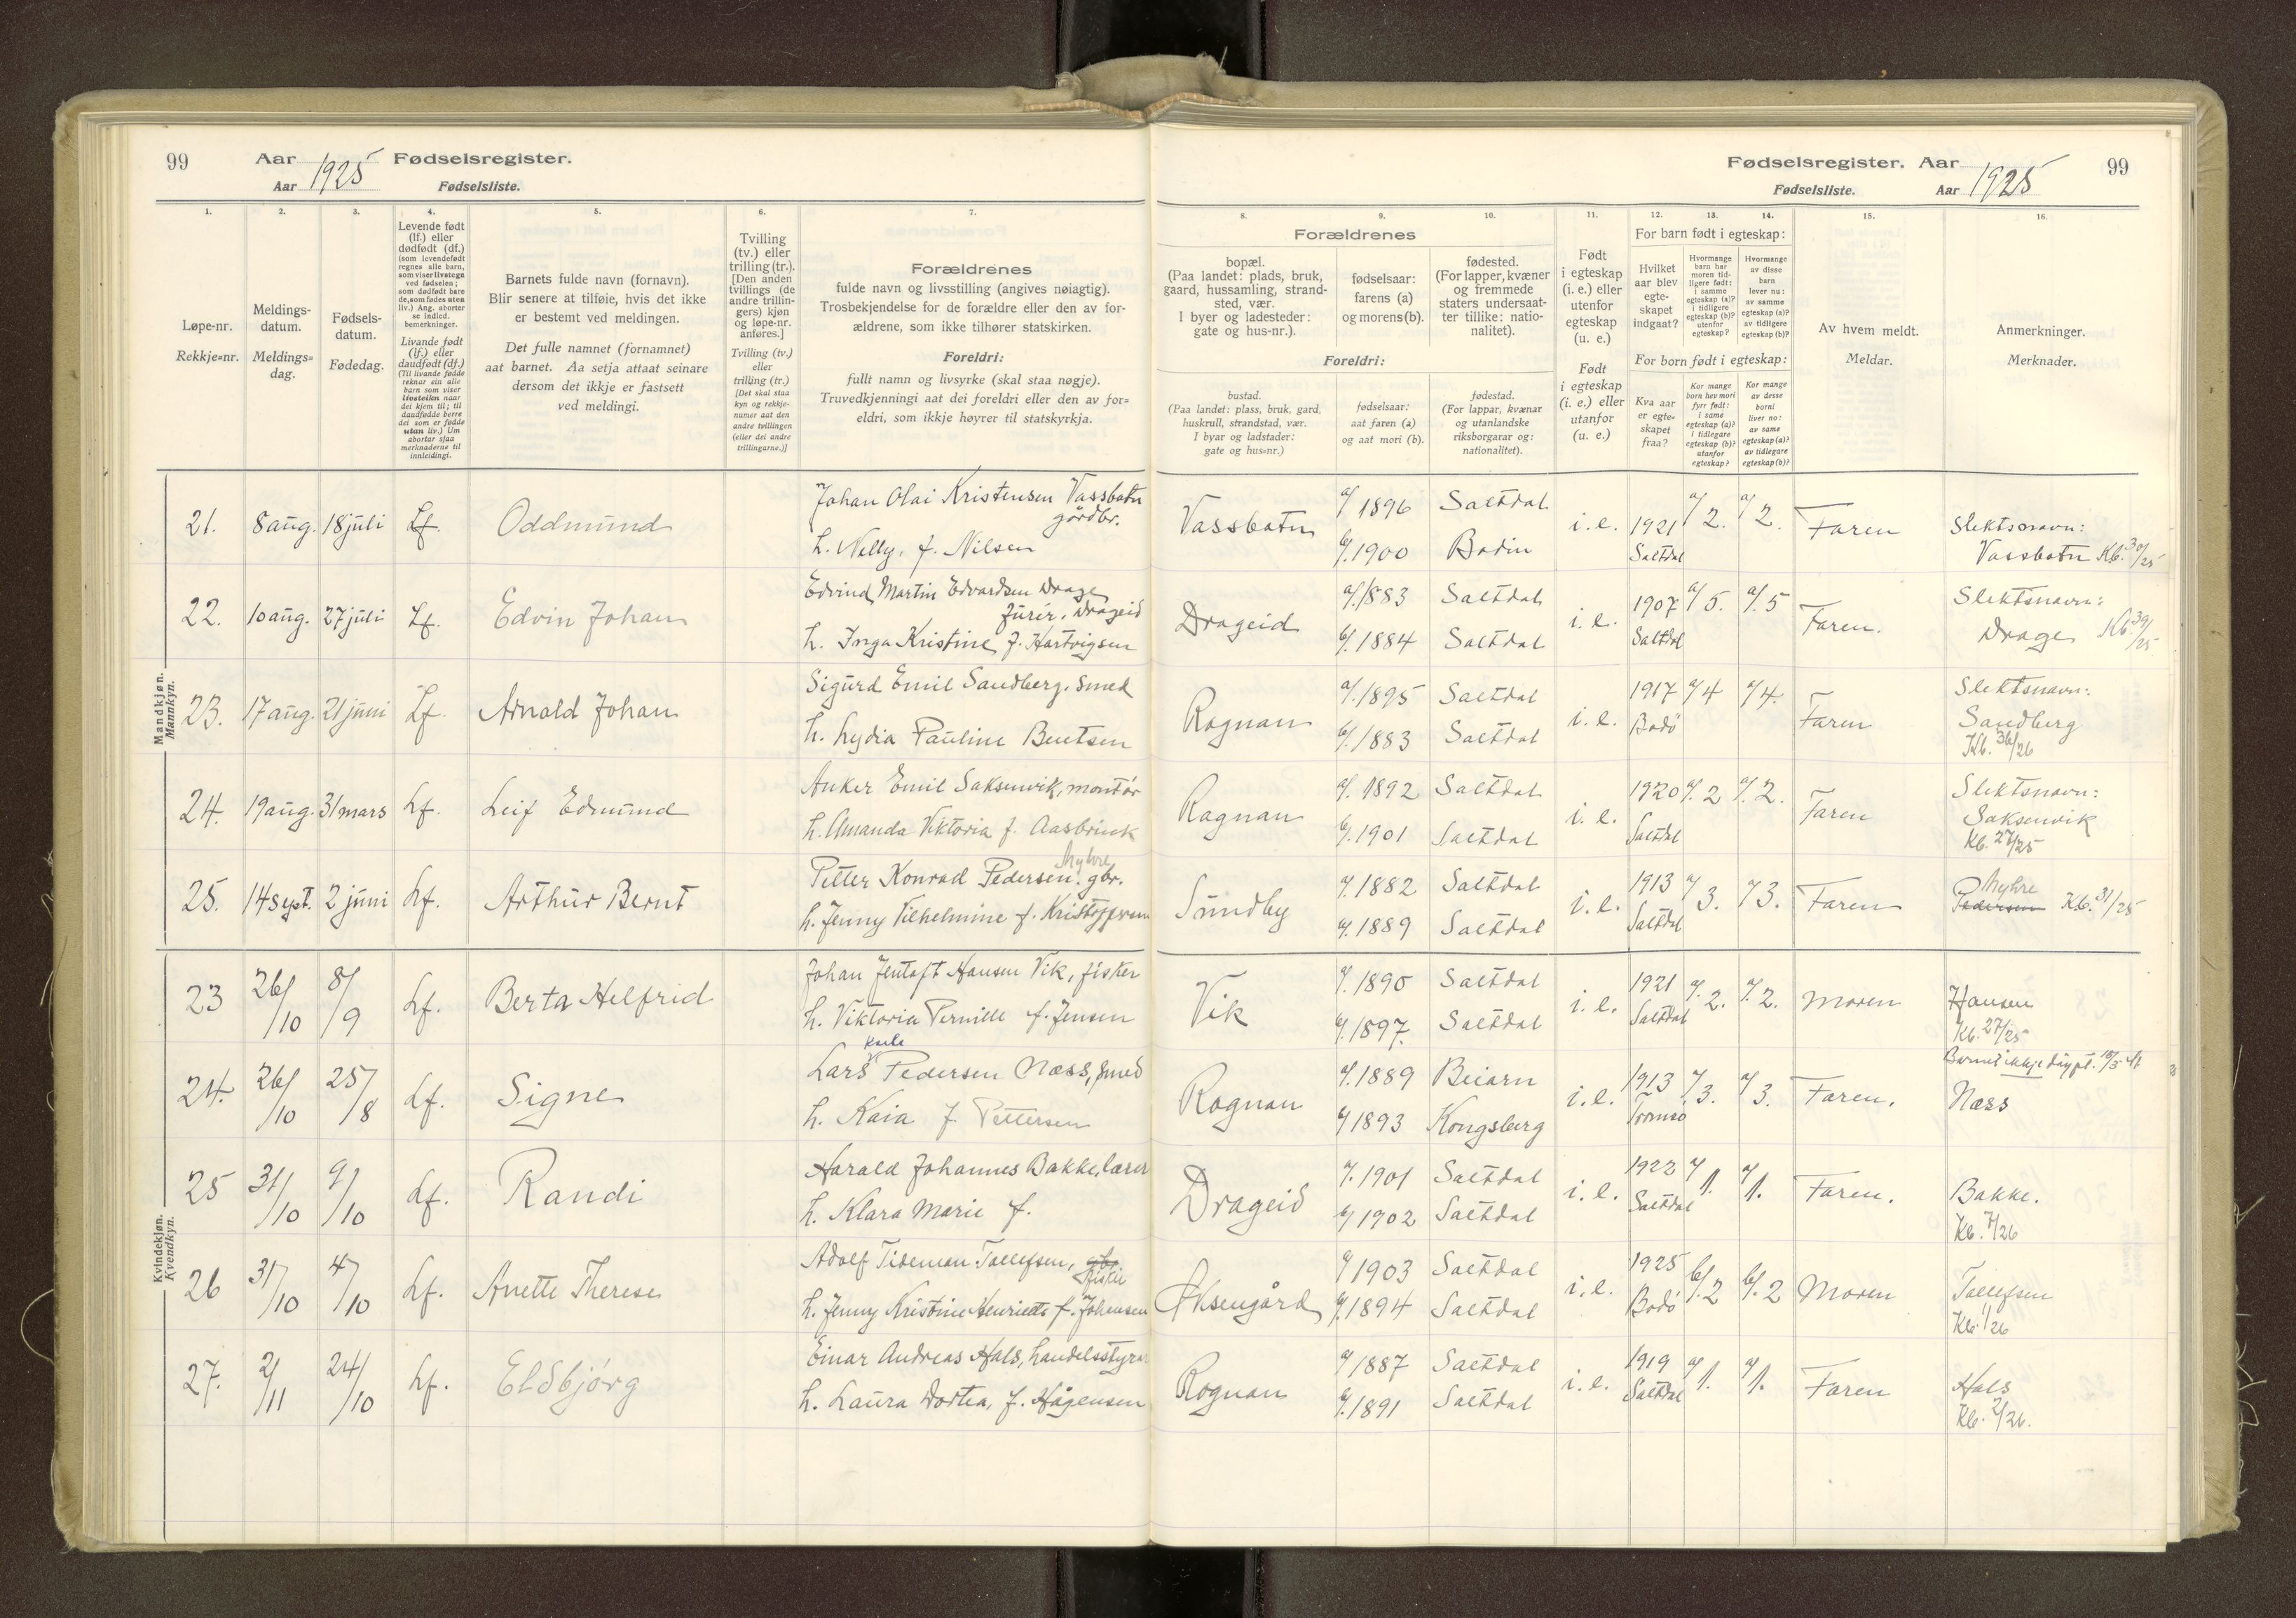 99 Aar 1925 Fødselsregister.
Aar Fødselsliste.
Fødselsregister. Aar 1925 99
Fødselsliste. Aar
1. 2. 3. 4. 5. 6. 7.
Løpe-nr.
Rekkje=nr.
Meldings-
datum.
Meldings=
dag.
Fødsels-
datum.
Fødedag.
Levende født
(lf.) eller
dødfødt (df.)
(som levendefødt
regnes alle barn,
som viser livstegn
ved fødselen;
som dødfødt bare
de, som fødes uten
liv.) Ang. aborter
se indled.
bemerkninger.
Livande født
(lf.) eller
daudfødt (df.)
(Til livande fødde
reknar ein alle
barn som viser
livsteikn naar
dei kjem til; til
daudfødde berre
dei som er fødde
utan liv.) Um
abortar sjaa
merknaderne til
innleidingi.
Barnets fulde navn (fornavn).
Blir senere at tilføie, hvis det ikke
er bestemt ved meldingen.
Det fulle namnet (fornamnet)
aat barnet. Aa setja attaat seinare
dersom det ikkje er fastsett
ved meldingi.
Tvilling
(tv.) eller
trilling (tr.).
[Den anden
tvillings (de
andre trillin-
gers) kjøn
og løpe-nr.
anføres.]
Tvilling (tv.)
eller
trilling (tr.)
[Det skal staa
kyn og rekkje-
numer aat den
andre tvillingen
(eller dei andre
trillingarne.)]
Forældrenes
fulde navn og livsstilling (angives nøiagtig).
Trosbekjendelse for de forældre eller den av for-
ældrene, som ikke tilhører statskirken.
Foreldri:
fullt namn og livsyrke (skal staa nøgje).
Truvedkjenningi aat dei foreldri eller den av for=
eldri, som ikkje høyrer til statskyrkja.
8. 9. 10. 11. 12. 13. 14. 15. 16.
Forældrenes
bopæl.
(Paa landet: plads, bruk,
gaard, hussamling, strand-
sted, vær.
I byer og ladesteder:
gate og hus-nr.).
fødselsaar:
farens (a)
og morens (b).
fødested.
(For lapper, kvæner
og fremmede
staters undersaat-
ter tillike: natio-
nalitet).
Foreldri:
bustad.
(Paa landet: plass, bruk, gard,
huskrull, strandstad, vær.
I byar og ladstader:
gate og hus=nr.)
fødselsaar:
aat faren (a)
og aat mori (b).
fødestad.
(For lappar, kvænar
og utanlandske
riksborgarar og:
nationalitet).
Født
i egteskap
(i. e.) eller
utenfor
egteskap
(u. e.)
Født
i egteskap
(i. e.) eller
utanfor
(u. e.)
For barn født i egteskap:
Hvilket
aar blev
egte-
skapet
indgaat?
Hvormange
barn har
moren tid-
ligere født:
i samme
egteskap (a)?
i tidligere
egteskap (b)?
utenfor
egteskap?
Hvormange
av disse
barn
lever nu:
av samme
egteskap (a)?
av tidligere
egteskap (b)?
For born født i egteskap:
Kva aar
er egte=
skapet
fraa?
Kor mange
born hev mori
fyrr født:
i same
egteskap (a)?
i tidlegare
egteskap (b)?
utanfor
egteskap?
Kor mange
av desse
borni
liver no:
av same
egteskap (a)?
av tidlegare
egteskap (b)?
Av hvem meldt.
Meldar.
Anmerkninger.
Merknader.
Mandkjøn.
Mannkyn.
21. 8 aug. 18 juli Lf. Oddmund
Johan Olai Kristensen Vassbotn
gårdbr.
h. Nelly, f. Nilsen
Vassbotn a/ 1896 Saltdal b/. 1900 Bodin i.e. 1921 Saltdal a/ 2. a/ 2. Faren Slektsnavn:
Vassbotn Kb. 30/25
22. 10 aug. 27 juli Lf. Edvin Johan
Edvind Martin Edvardsen Drage
furér, Drageid
h. Inga Kristine f. Hartvigsen
Drageid a/. 1883 Saltdal b/. 1884 Saltdal i.e. 1907 Saltdal a/ 5. a/. 5 Faren. Slektsnavn:
Drage Kb. 39/25
23. 17 aug. 21 juni Lf. Arnold Johan
Sigurd Emil Sandberg, smed
h. Lydia Pauline Bentsen
Rognan a/. 1895 Saltdal b/. 1883 Saltdal i.e. 1917 Bodö a/ 4 a/ 4. Faren Slektsnavn:
Sandberg
Kb. 36/26
24. 19 aug. 31 mars Lf. Leif Edmund
Anker Emil Saksenvik, montör
h. Amanda Viktoria f. Aasbrink
Rognan a/. 1892 Saltdal b/. 1901 Saltdal i.e. 1920 Saltdal a/. 2 a/. 2. Faren Slektsnavn:
Saksenvik
Kb. 27/25
25. 14 sept. 2 juni Lf. Arthur Bernt
Myhre
Petter Konrad Pedersen, gbr.
h. Jenny Vilhelmine f. Kristoffersen
Sundby a/. 1882 Saltdal b/. 1889 Saltdal i.e. 1913 Saltdal a/ 3. a/ 3. Faren Myhre
Pedersen Kb. 31/25
Kvindekjøn.
Kvendkyn.
23 26/10 8/9 Lf. Berta Helfrid
Johan Jentoft Hansen Vik, fisker
h. Viktoria Pernille f. Jensen
Vik a/. 1890 Saltdal b/. 1897. Saltdal i.e. 1921 Saltdal a/. 2. a/. 2. Moren Hansen
Kb. 27/25
24. 26/10 25/8 Lf. Signe
Karle
Lars Pedersen Næss, smed
h. Kaia f. Pettersen
Rognan a/. 1889 Beiarn b/ 1893 Kongsberg i.e. 1913 Tromsö a/ 3. a/ 3. Faren. Barnet ikkje døypt.
Næss
25 31/10 9/10 Lf. Randi
Harald Johannes Bakke, lærer
h. Klara Marie f.
Drageid a/. 1901 Saltdal b/ 1902 Saltdal i.e. 1922 Saltdal a/ 1. a/ 1. Faren. Bakke.
Kb. 7/26
26 31/10 4/10 Lf. Anette Therese
Adolf Tideman Tollefsen, gbr.
fisker
h. Jenny Kristine Henriette f. Johansen
Öksengård a/ 1903 Saltdal b/. 1894 Saltdal i.e. 1925 Bodö b/. 2 b/. 2 Moren Tollefsen
Kb. 1/26
27. 2/11 24/10 Lf. Eldbjörg
Einar Andreas Hals, handelsstyrar
h. Laura Dortea, f. Hågensen
Rognan a/ 1887 Saltdal b/. 1891 Saltdal i.e. 1919 Saltdal a/ 1. a/ 1. Faren Hals
Kb. 2/26.